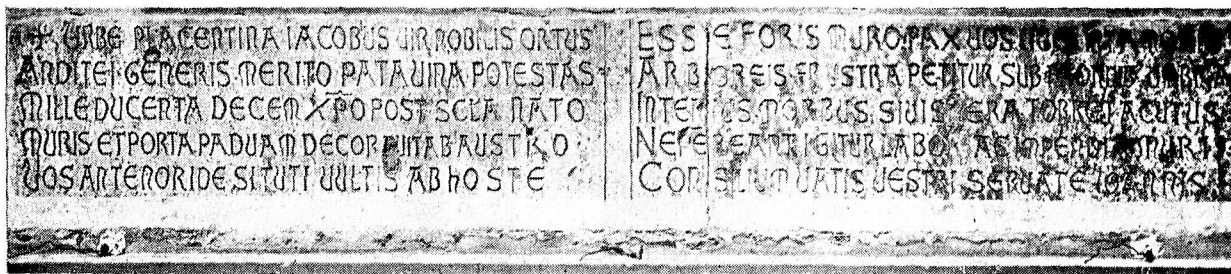 + URBE PLACENTINA IACOBUS UIR NOBILIS ORTUS
ANDITEI GENERIS MERITO PATAUINA POTESTAS
MILLE DUCENTA DECEM XPO POST SCLA NATO
MURIS ET PORTA PADUAM DECORAUIT AB AUSTRO
UOS ANTENORIDE SI TUTI UULTIS AB HOSTE
ESSE FORIS MURO PAX UOS
ARBOREIS FRUSTRA PETITUR SUB FRONDIB UMBRA
INTERIUS MORBUS SI UISCERA TORRET ACUTUS
NE PEREANT IGITUR LABOR AC IMPENDIA MURI
CONSILIUM UATIS UESTRI SERUATE IOANNIS